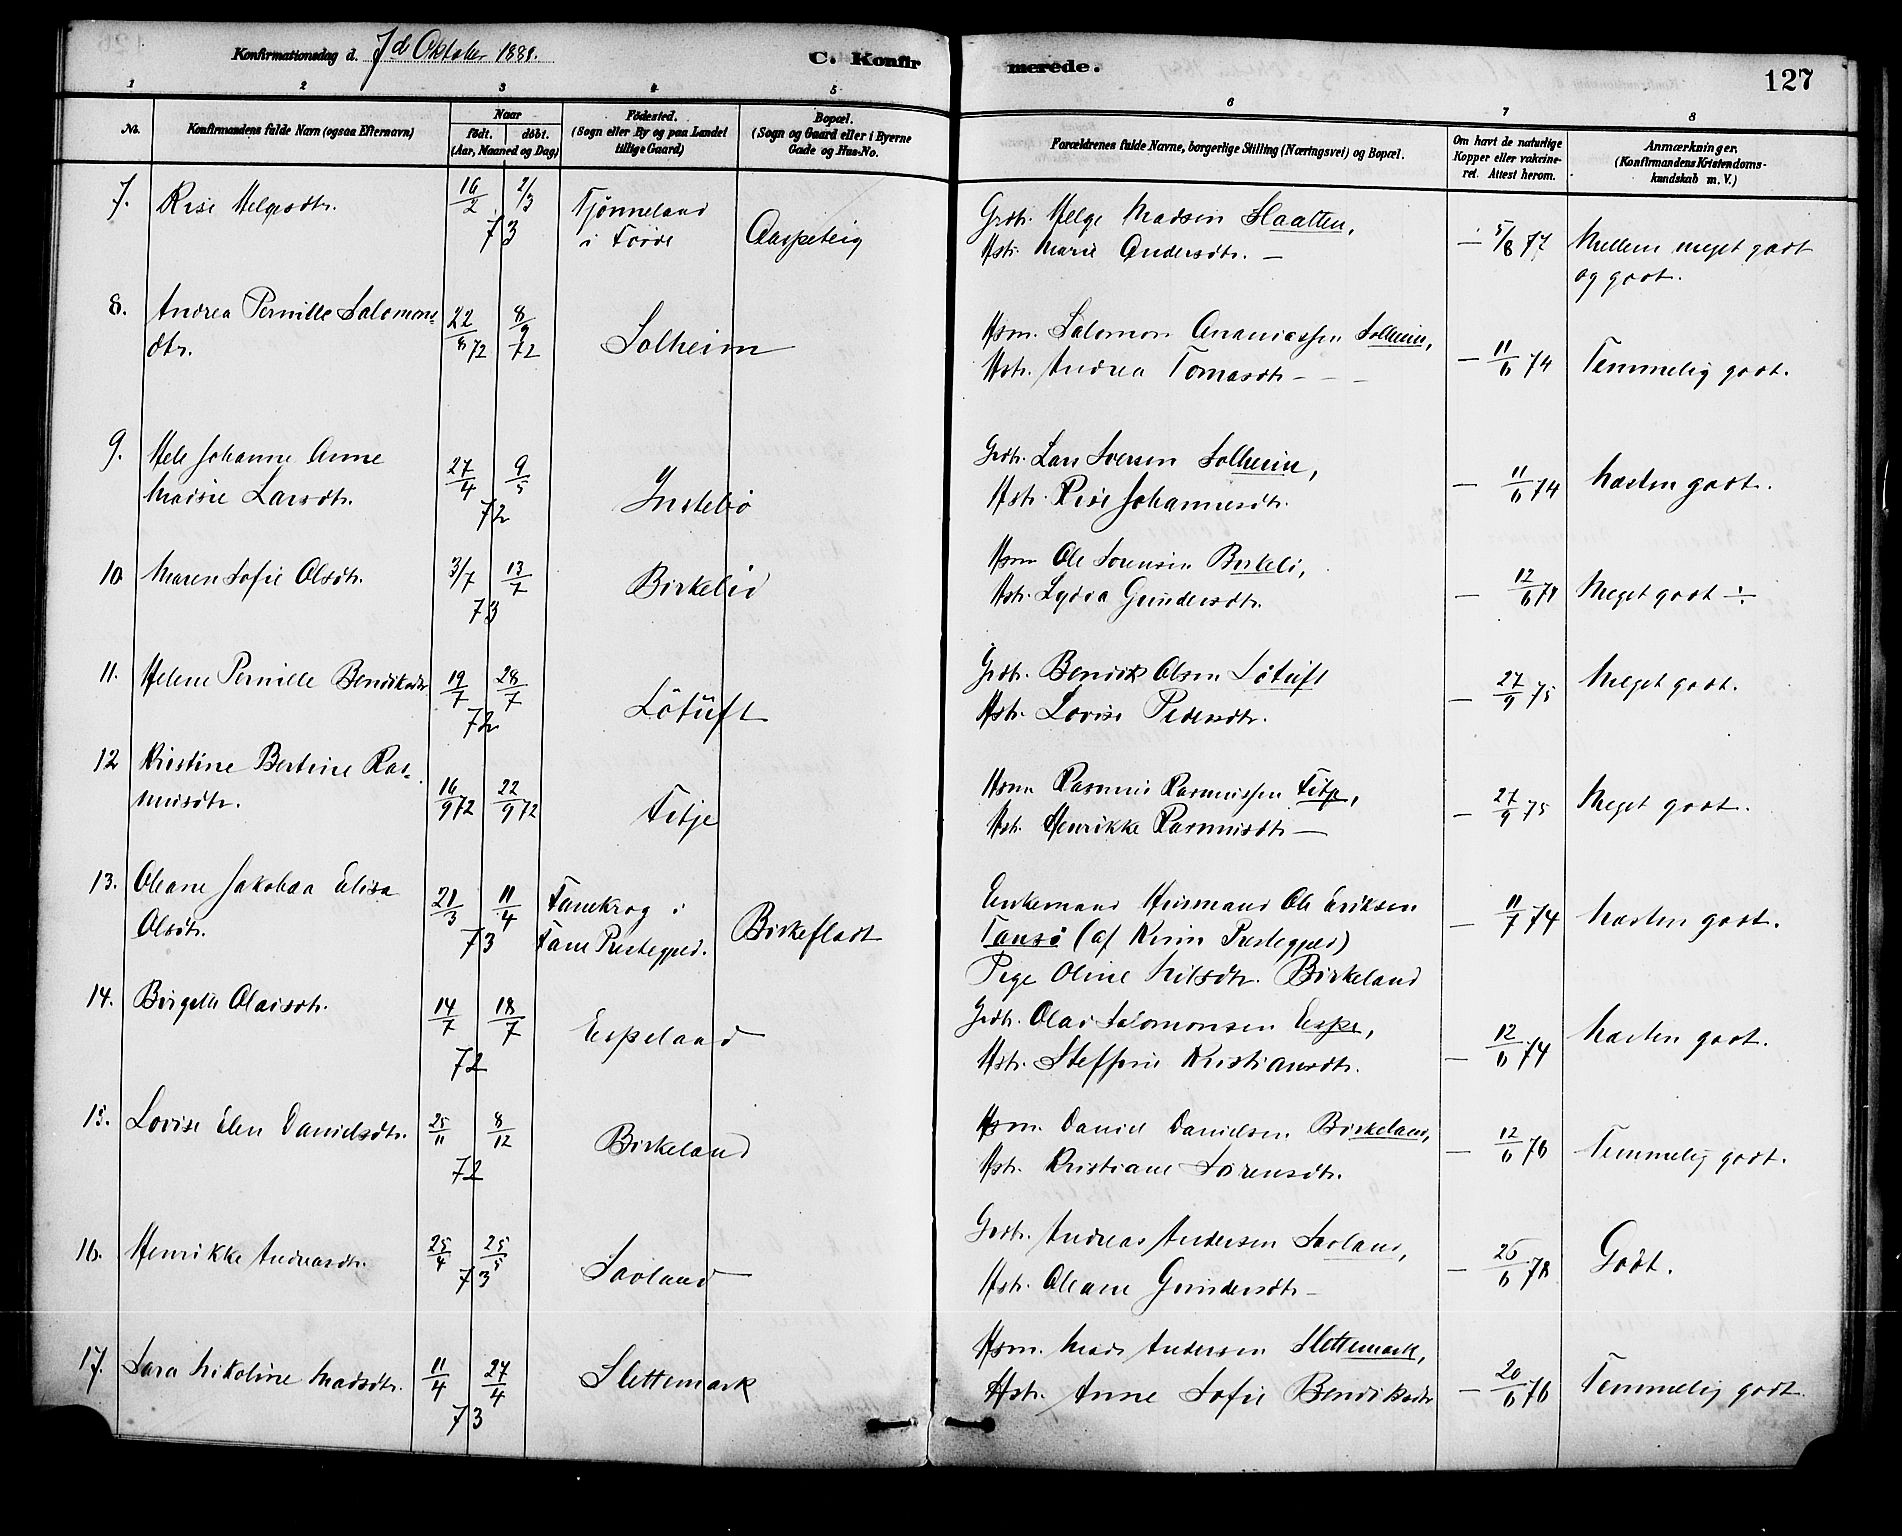 Konfirmationsdag d. 7d Oktober 1888.
C. Konfir merede.
127
1 2 3 4 5 6 7 8
No.
Konfirmandens fulde Navn (ogsaa Efternavn)
Naar
født. døbt.
(Aar, Maaned og Dag)
Fødested.
(Sogn eller By og paa Landet
tillige Gaard)
Bopæl.
(Sogn og Gaard eller i Byerne
Gade og Hus-No.
Forældrenes fulde Navne, borgerlige Stilling (Næringsvei) og Bopæl.
Om havt de naturlige
Kopper eller vakcine-
ret. Attest herom.
Anmærkninger.
(Konfirmandens Kristendoms-
kundskab m. V.)
7. Rise Helgesdtr. 16/2 2/3 73 Tjønneland
i Førde Aaspeteig
Grdr. Helge Madsen Slaatten,
Hstr. Marie Andersdtr. —
— 5/8 77 Mellem meget godt
og godt.
8. Andrea Pernille Salomons-
dtr. 22/8 72 8/9 72 Solheim
Hsm. Salomon Ananiassen Solheim,
Hstr. Andrea Tomasdtr - - -
— 11/6 74 Temmelig godt.
9. Johanne Anne
Marie Larsdtr. 27/4 9/5 72 Instebø
Grdr. Lars Iversen Solheim,
Hstr. Rise Johannesdtr.
— 11/6 74 Næsten godt.
10. Maren Sofie Olsdtr. 3/7 13/7 73 Birkebø
Hsm Ole Sørensen Birkebø,
Hstr. Lydia Gundersdtr.
— 12/6 Meget godt ÷
11. Helene Pernille Bendiksdtr 19/7 28/7 72 Løtuft
Grdr. Bendik Olsen Løtuft
Hstr. Lovise Pedersdtr.
— 27/9 75 Meget godt.
12 Kristine Bertine Ras-
musdtr. 16/9 72 22/9 72 Fitje
Hsm Rasmus Rasmussen Fitje,
Hstr. Henrikke Rasmusdtr —
— 27/9 75 Meget godt.
13. Oleane Jakobaa Elisa
Olsdtr. 21/3 11/4 73 Fanekrog i
Fane Prestegjæld. Birkefladt
Enkemand Husmand Ole Eriksen
Tansø (af Kinn Prestegjæld)
Pige Oline Nilsdtr. Birkeland
— 11/7 74 Næsten godt.
14. Birgitte Olaisdtr. 14/7 18/7 72 Espeland
Grdr. Olai Salomonsen Espe,
Hstr. Steffine Kristiansdtr.
— 12/6 74 Næsten godt.
15. Lovise Elen Danielsdtr. 25/11 8/12 72 Birkeland
Hsm. Daniel Danielsen Birkeland,
Hstr. Kristiane Sørensdtr.
— 12/6 76 Temmelig godt.
16. Henrikke Andreasdtr. 25/4 25/5 73 Søoland
Grdr. Andreas Andersen Søoland,
Hstr. Oleane Gundersdtr —
— 26/6 78 Godt.
17. Sara Nikoline Madsdtr. 11/4 27/4 73 Slettemark
Hsm. Mads Andersen Slettemark,
Hstr. Anne Sofie Bendiksdtr
— 20/6 76 Temmelig godt.